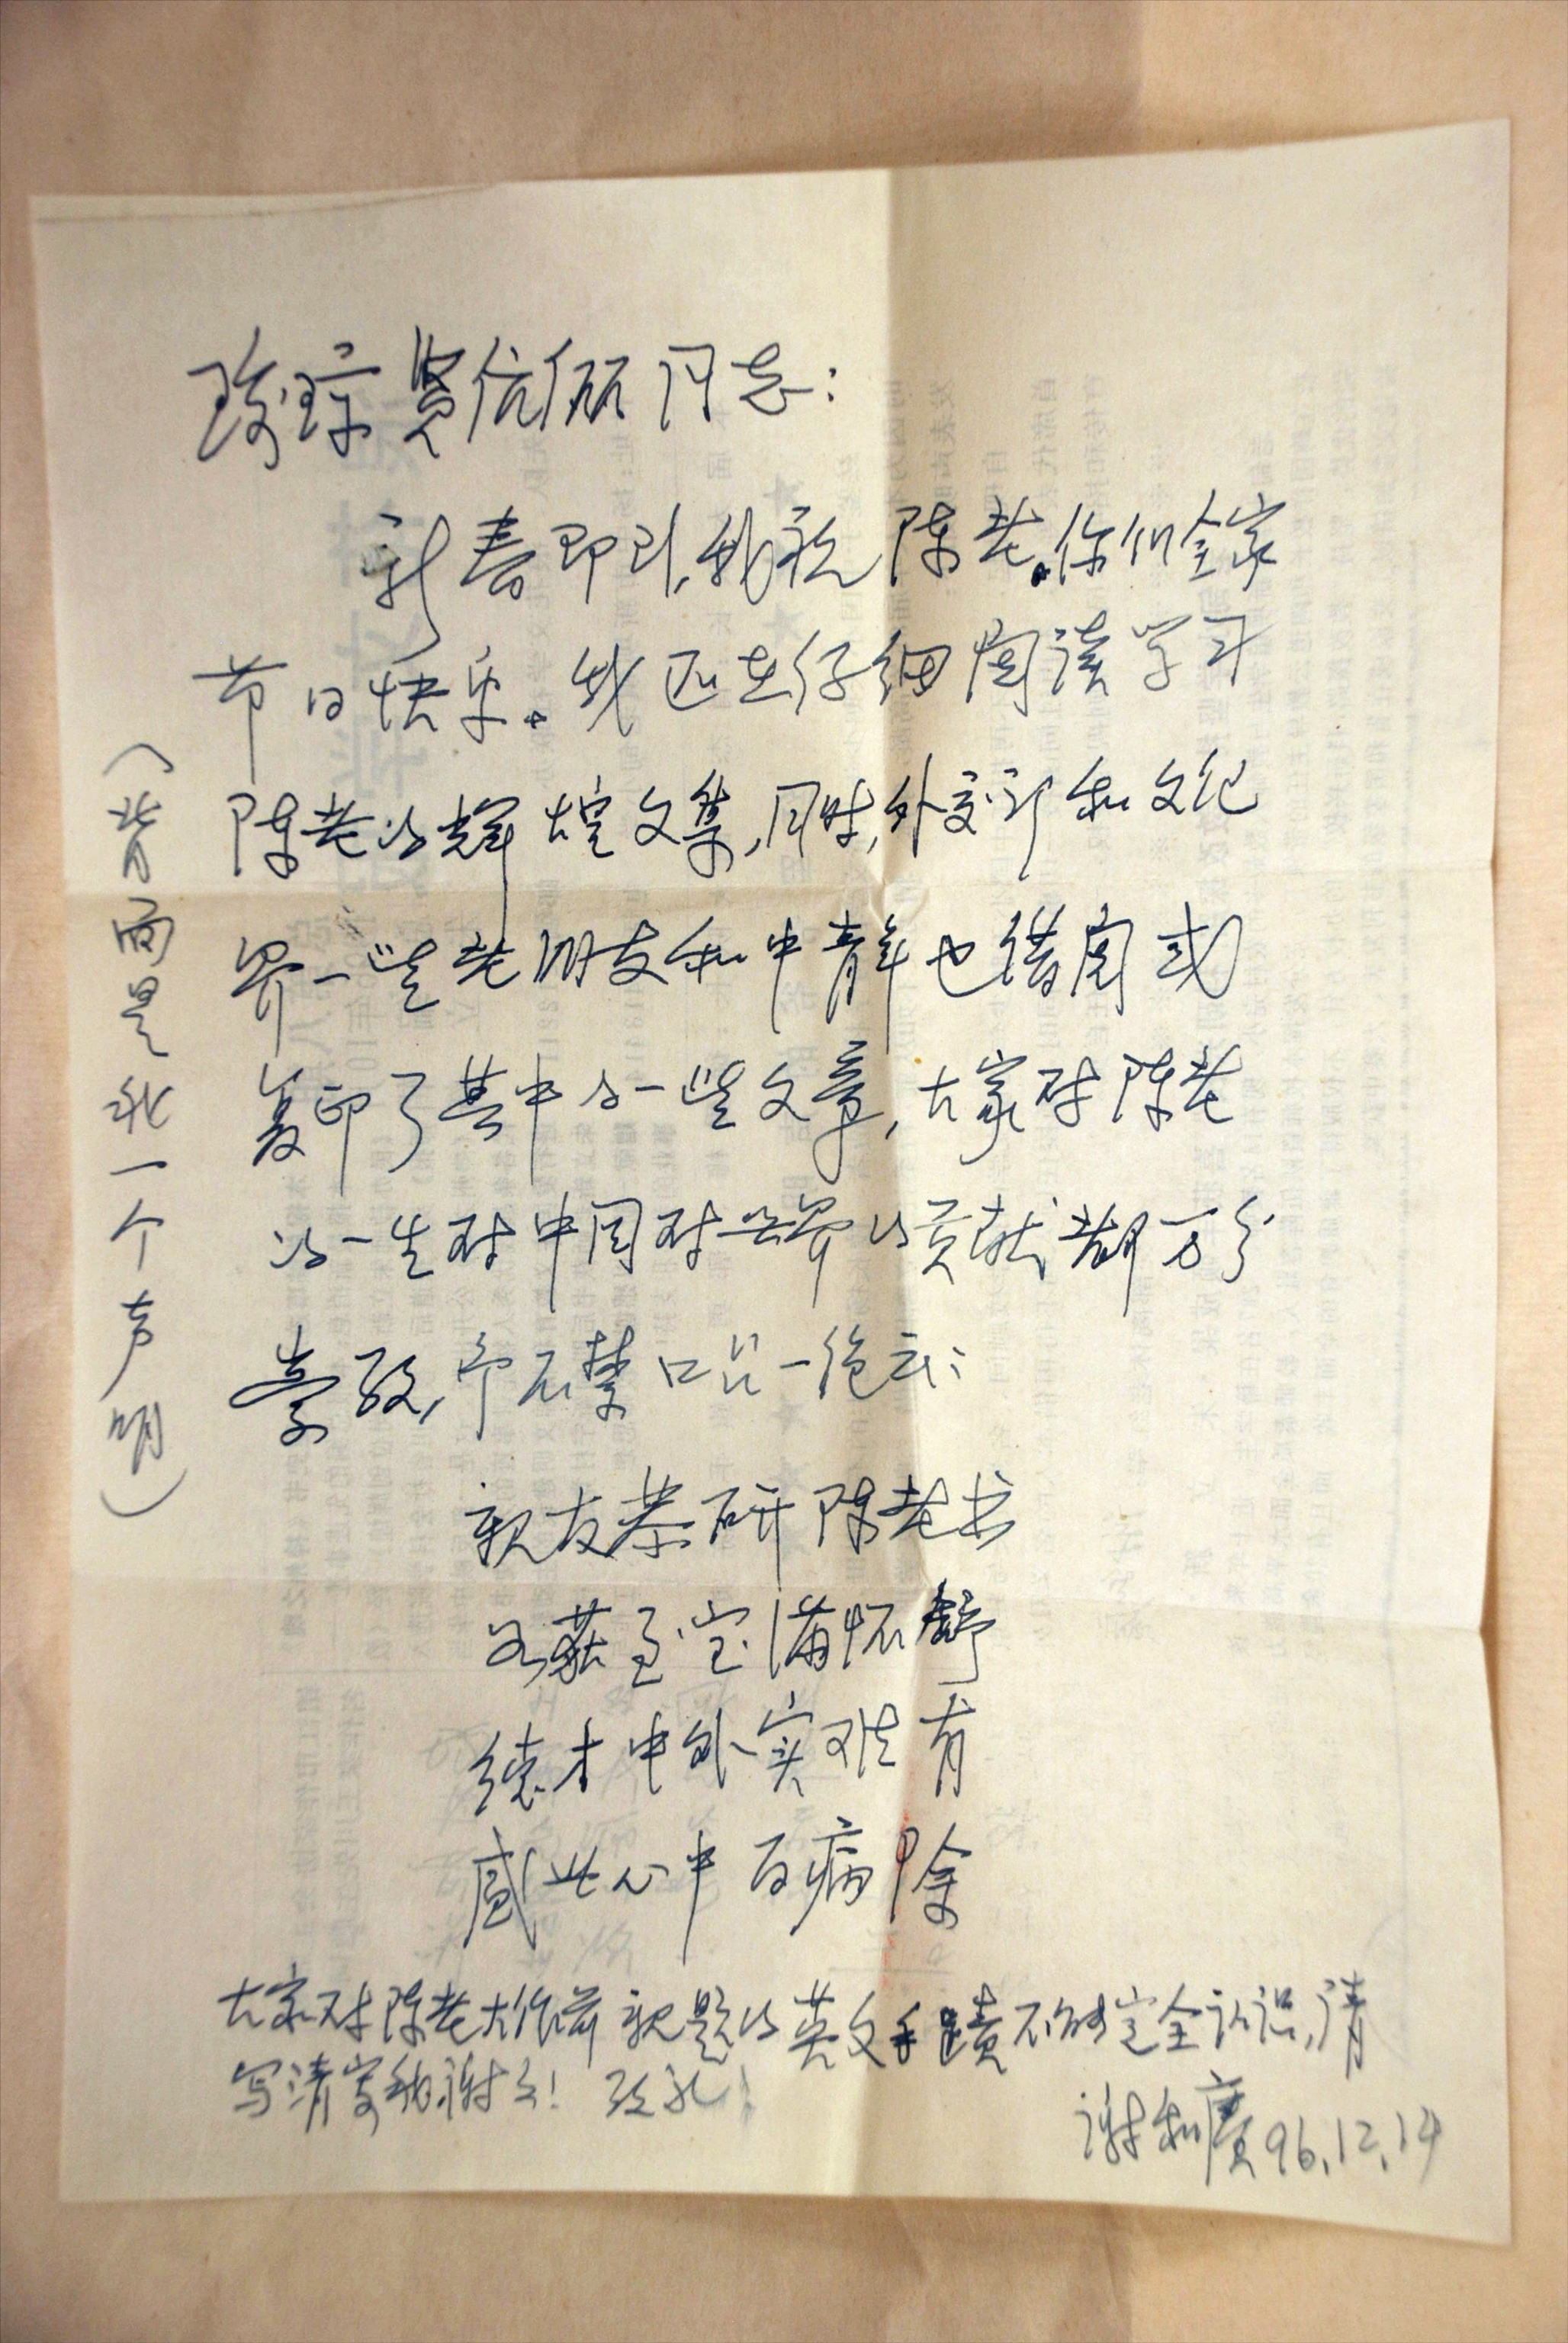 陵琼贤伉俪同志：
新春即到，我祝陈老、你们全家
节日快乐。我正在仔细阅读学习
陈老的辉煌文集，同时，外交部和文化
界一些老朋友和中青年也借阅或
复印了其中的一些文章，大家对陈老
的一生对中国对世界的贡献都万分
崇敬，予不禁口占一绝云：
亲友恭研陈老书
如获至宝满怀舒
德才中外实难有
感此心中百病除
大家对陈老大作前亲题的英文手迹不能完全认识，请
写清寄我，谢谢！致礼！
谢和赓96.12.14
（背面是我一个声明）